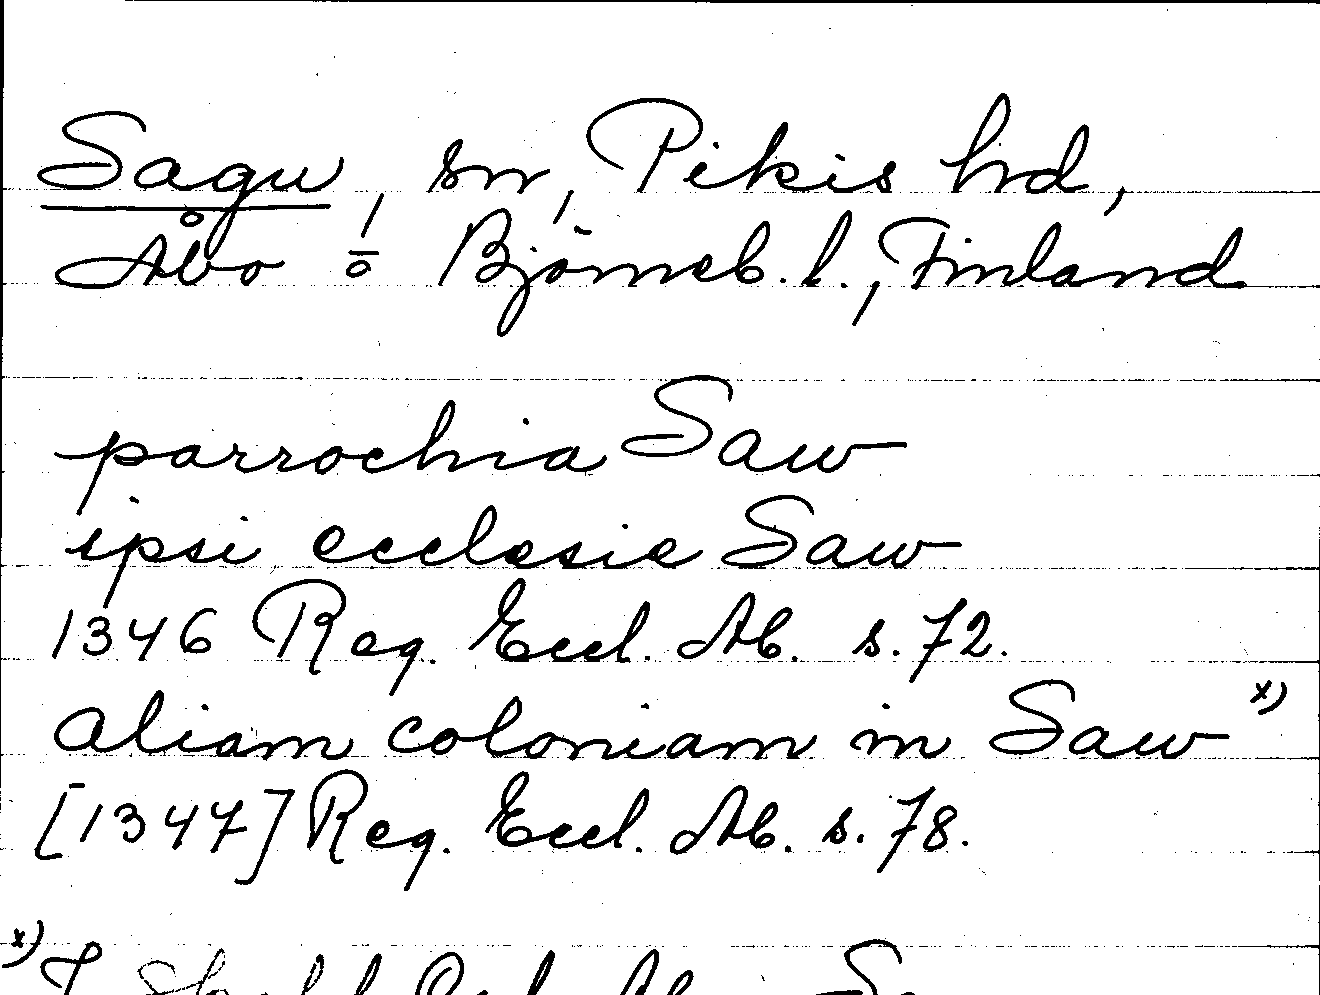 Sagu, sn, Pikis hd,
Åbo o. Björneb. l., Finland
parrochia Saw
ipsi ecclesie Saw
1346 Reg. Eccl. Ab. s. 72.
aliam coloniam in Saw x)
[1347] Reg. Eccl. Ab. s. 78.
x)